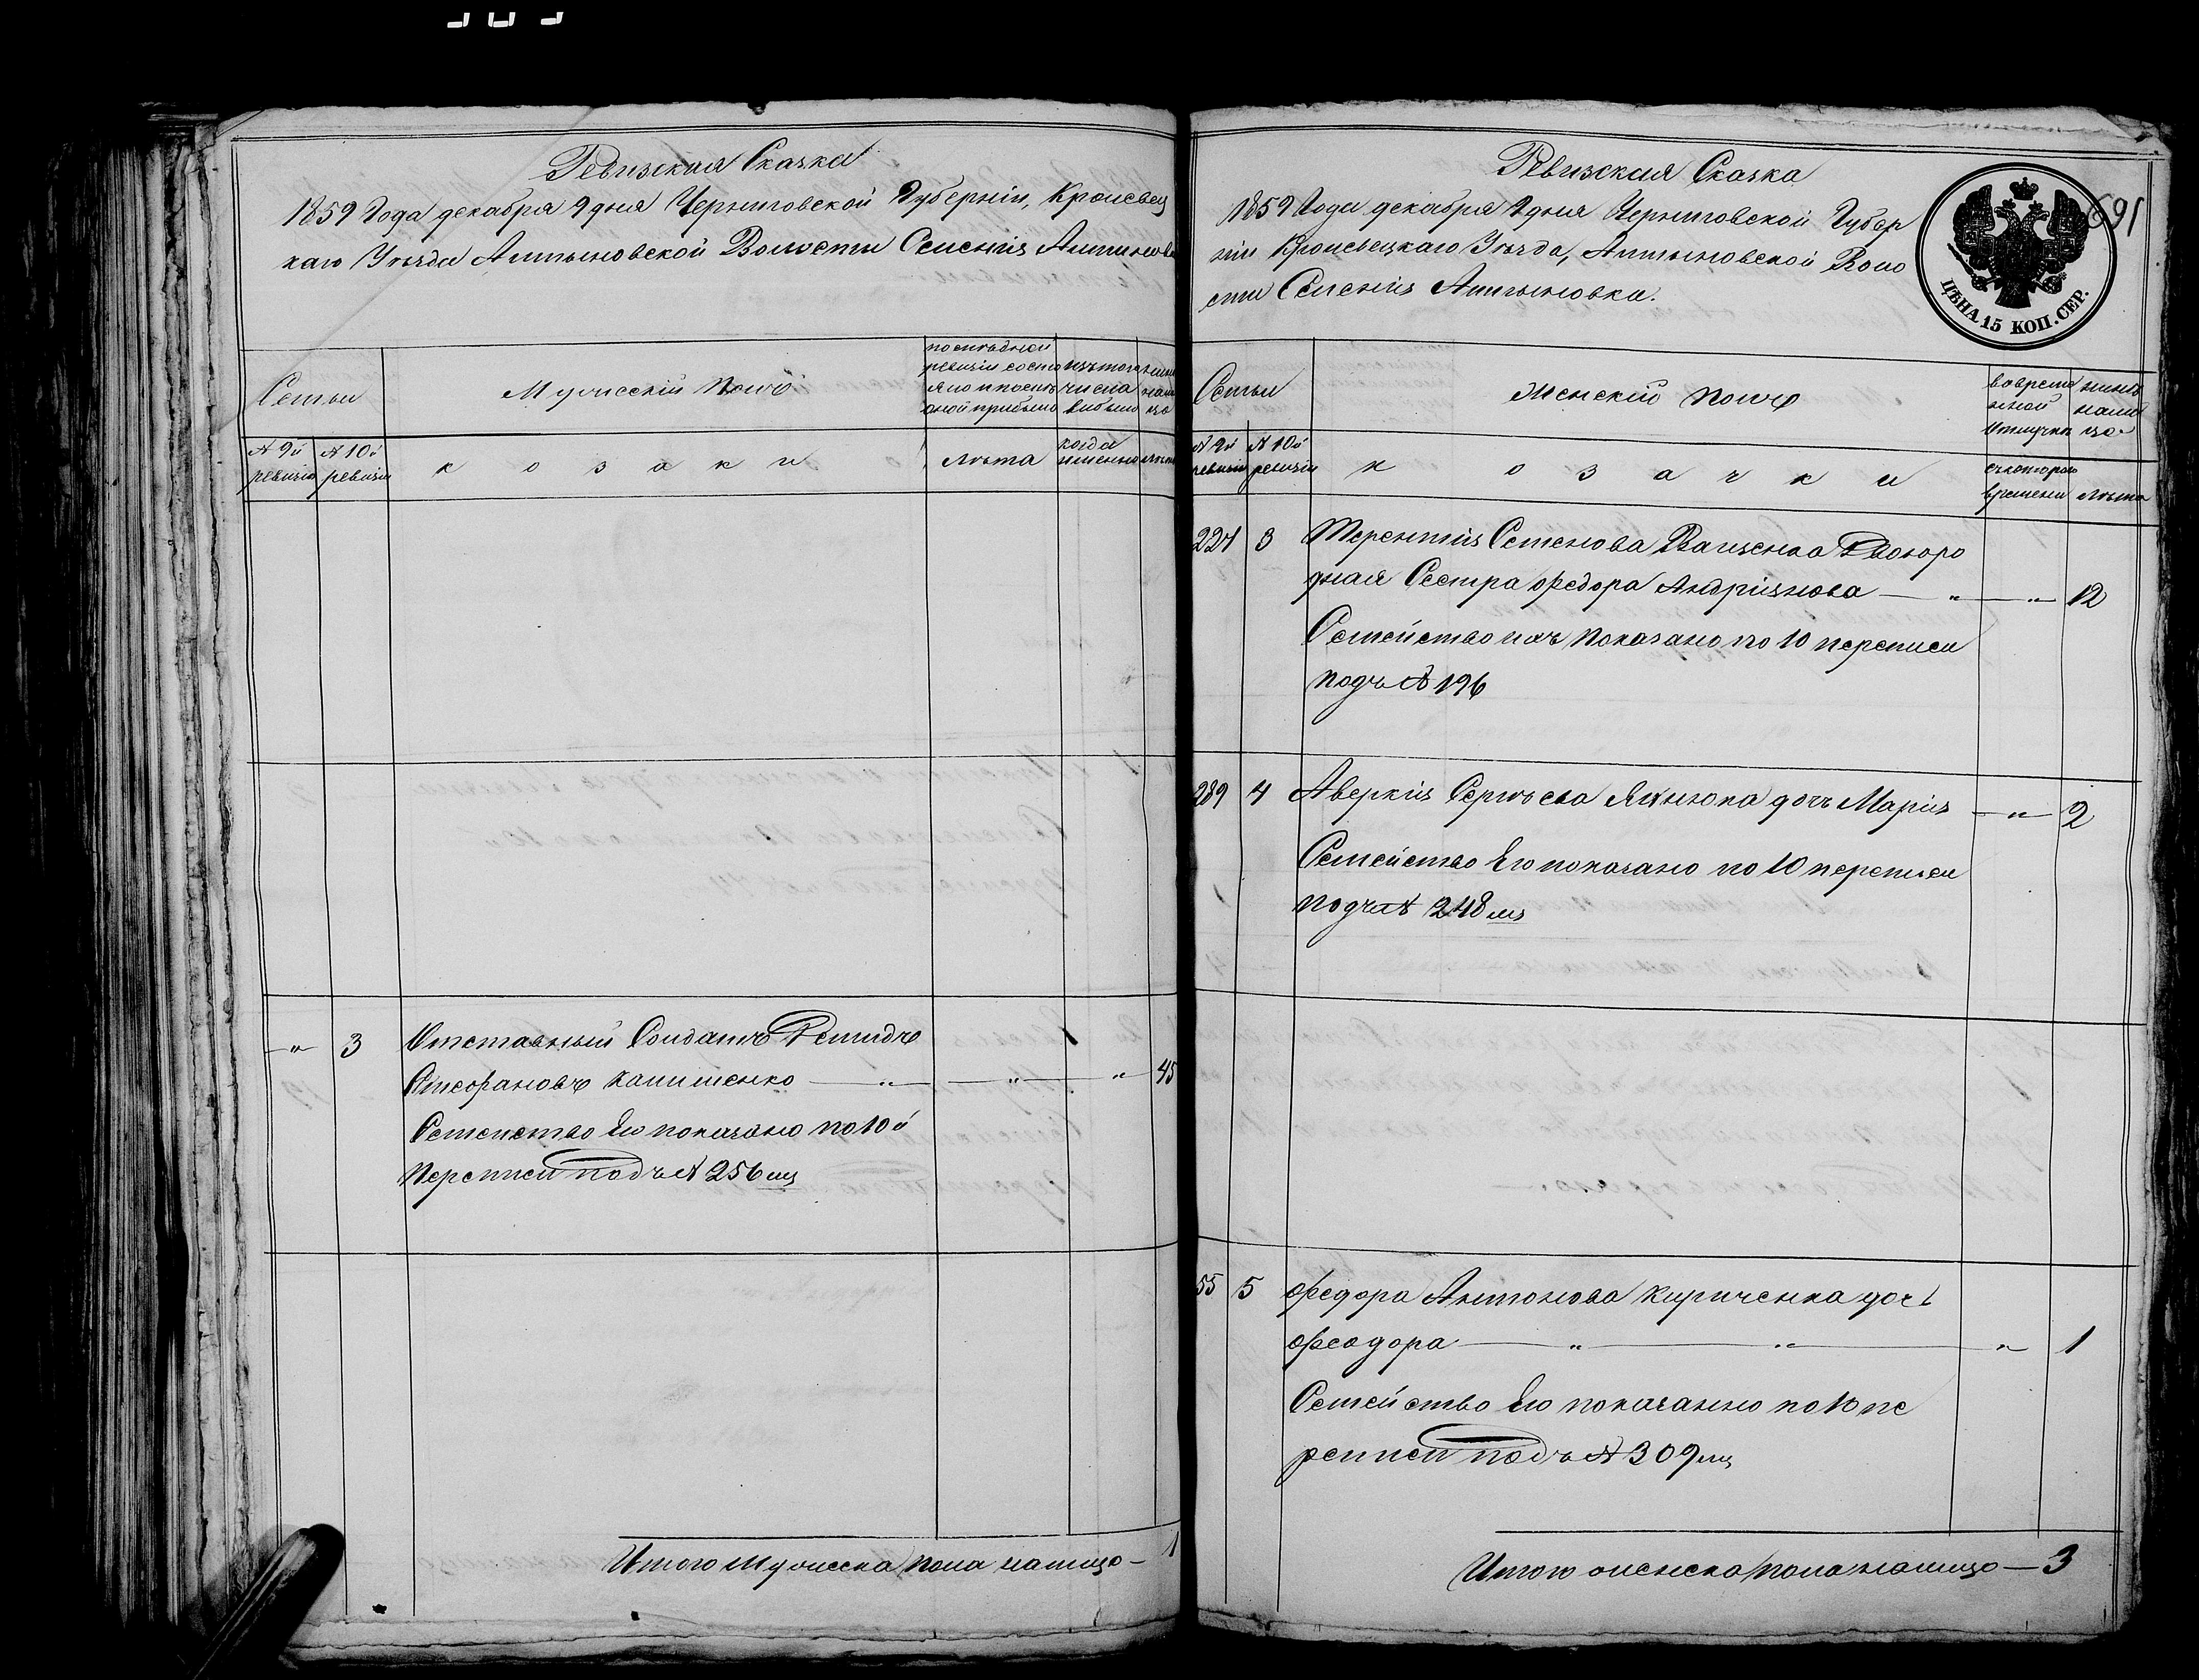 Ревизская Сказка
1859 Года декабря 9 дня Черниговской Губерніи, Кролевец
каго Уѣзда Алтыновской Волости Селенія Алтыновка
Семьи
Мужескій полъ
по послѣдней
ревизіи состо
яло и послѣ
оной прибыло
изъ того
числа
выбыло
нынѣ
нали
цо
№ 9й
ревизіи
№ 10й
ревизіи
к о з а к и
лѣта
когда
именно
лѣта
— " — 3 Отставный Солдатъ Демидъ
Стефановъ Калитенко — " — " — " 45
Семейство Его показано по 10й
переписи подъ № 256 мъ
Итого мужеска пола налицо — 1
Ревизская Сказка
1859 Года декабря 9 дня Черниговской Губер
ніи Кролевецкаго Уѣзда, Алтыновской Воло
сти Селенія Алтыновка.
691
ЦѢНА 15 КОП. СЕР.
Семьи
Женскій полъ
во врем
нной
отлучкѣ
нынѣ
нали
цо
№ 9й
ревизіи
№ 10й
ревизіи
к о з а ч к и
съ котораго
времени
лѣта
224 3 Терентія Семенова Ващенка Двоюро
дная Сестра Федора Андріянова — " — " — 12
Семейство ихъ показано по 10 переписи
подъ № 196
289 4 Аверкія Сергѣева Якнюка дочь Марія — " — 2
Семейство Его показано по 10 переписи
подъ № 248 мъ
55 5 Федора Антонова Кириченка дочь
Феодора — " — " — " — 1
Семейство Его показанно по 10 пе
реписи подъ № 309 мъ
Итого женска пола налицо — 3